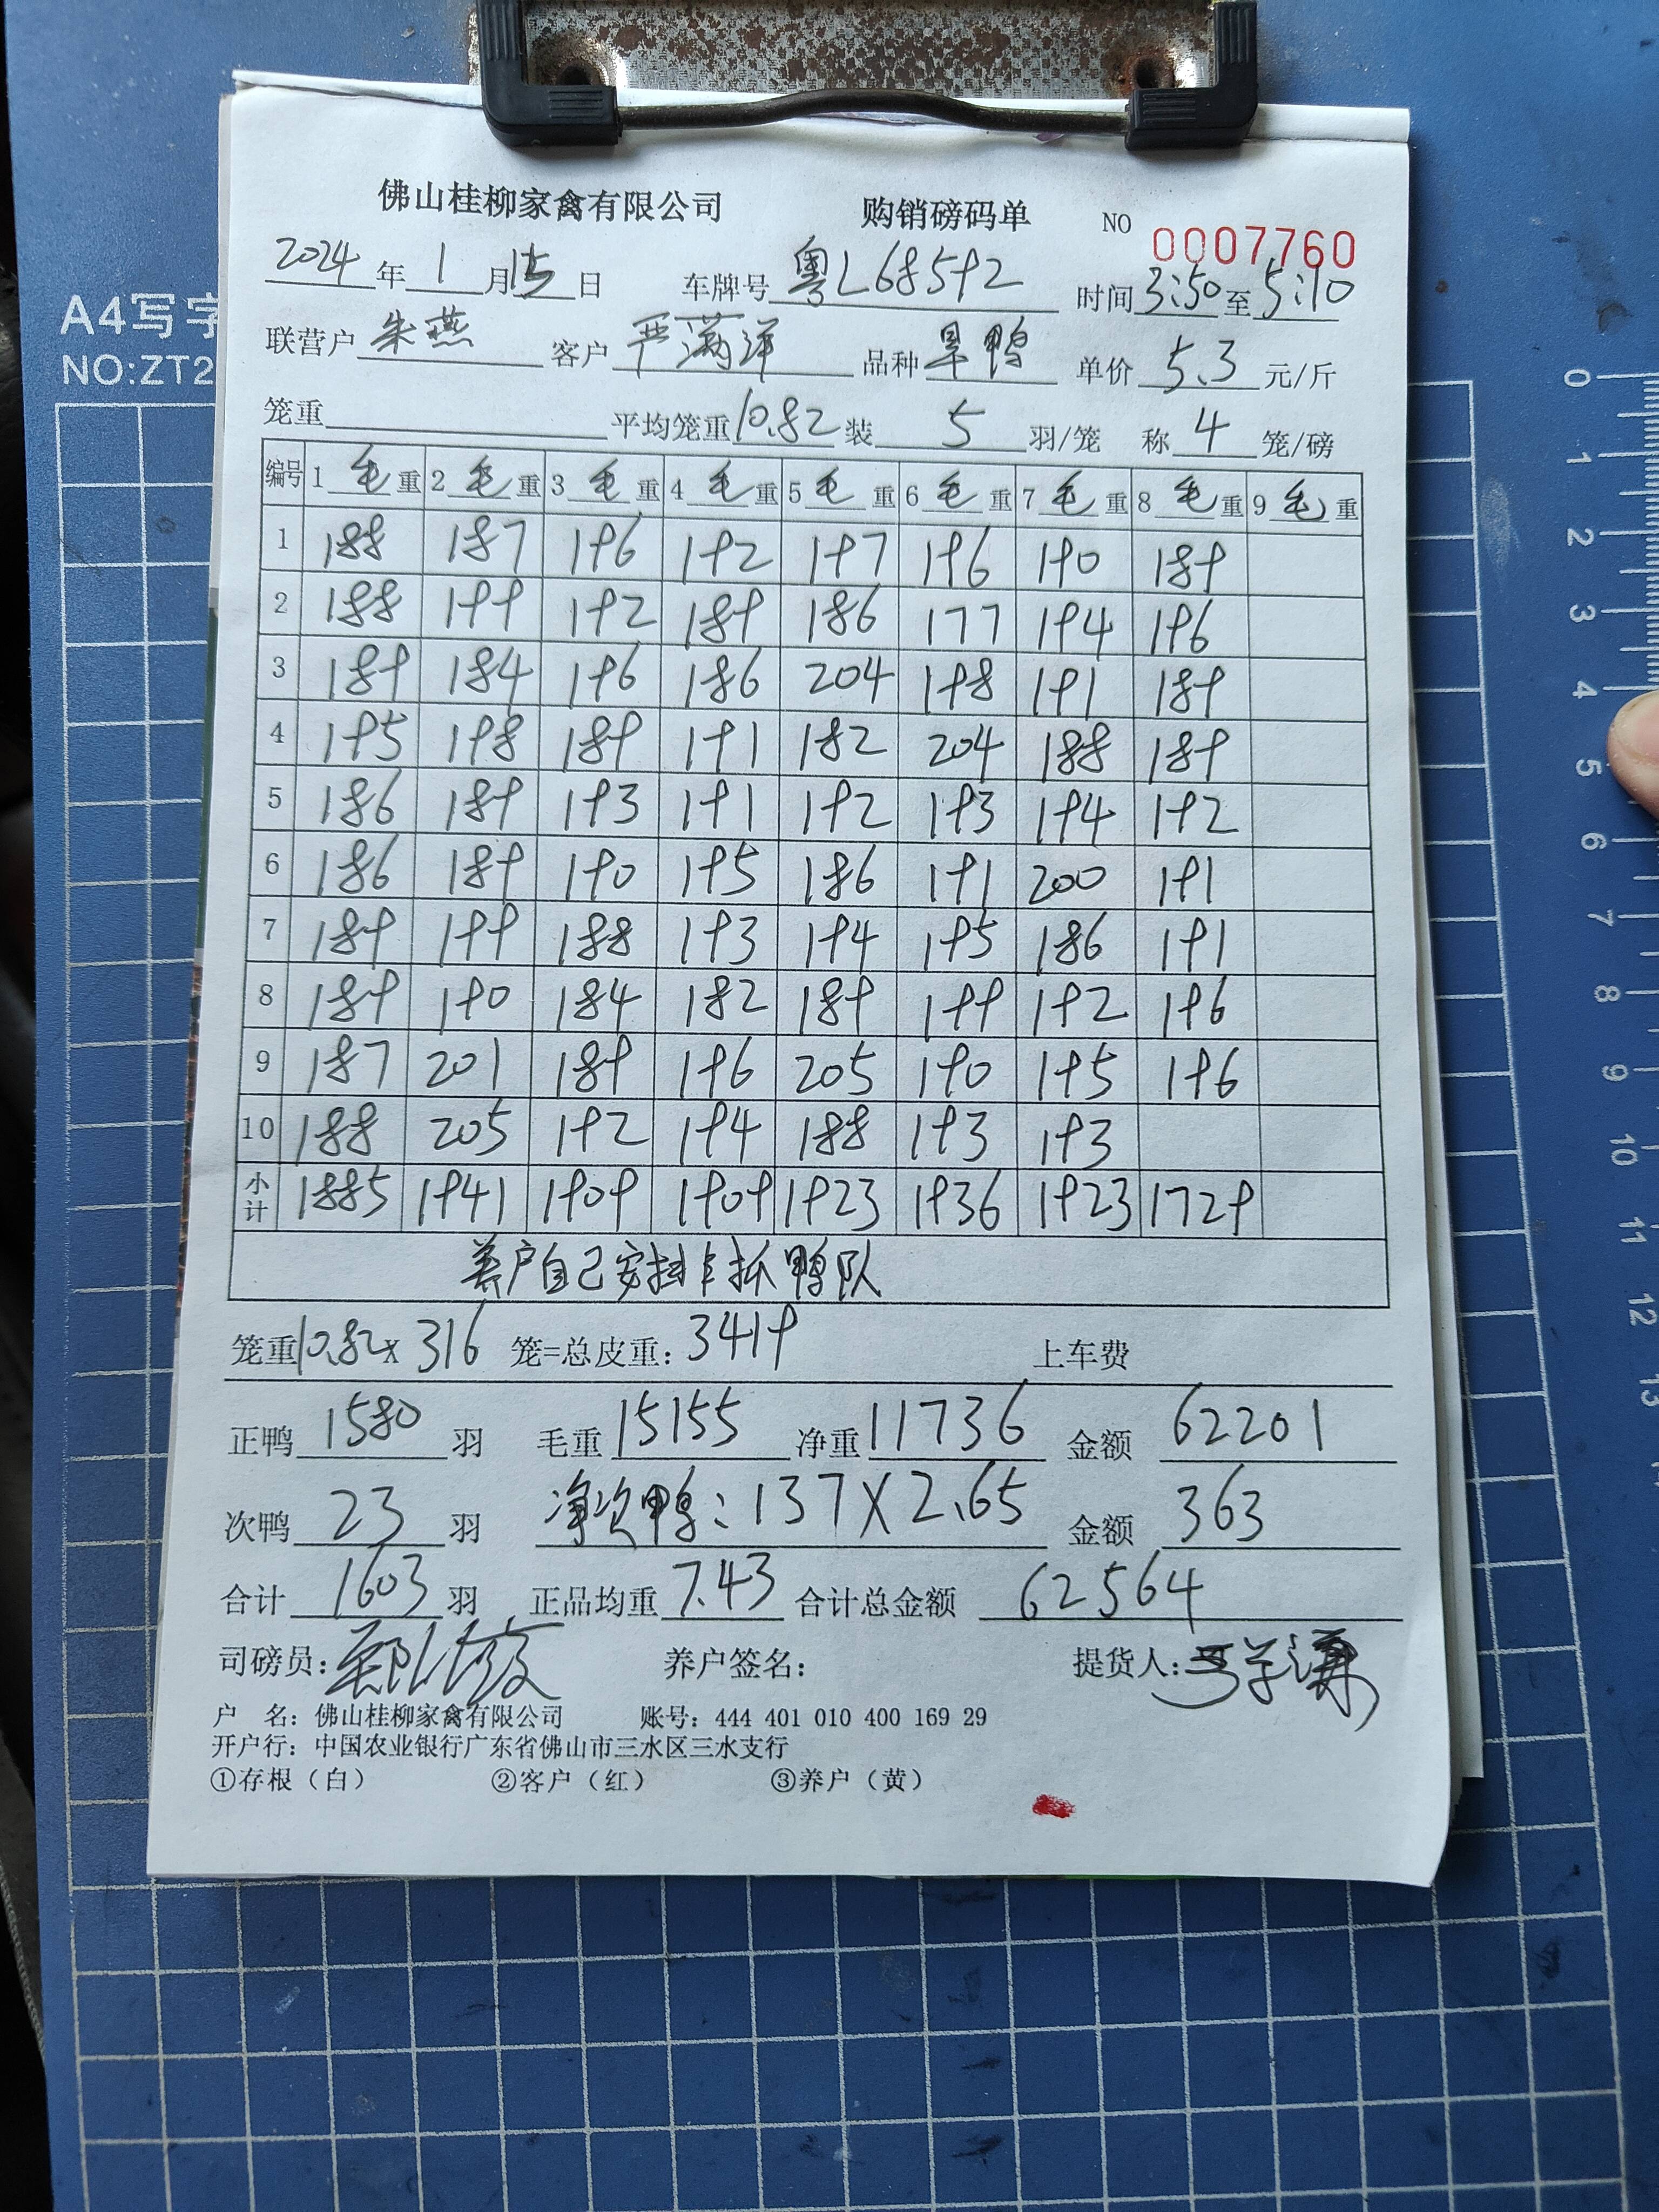 佛山桂柳家禽有限公司 购销磅码单 NO 0007760
2024年1月15日 车牌号 粤L68592 时间3:50至5:10
A4写字
NO:ZT2
联营户 朱燕 客户 严满洋 品种 旱鸭 单价 5.3 元/斤
笼重 平均笼重10.82 装 5 羽/笼 称 4 笼/磅
编号 1毛重 2毛重 3毛重 4毛重 5毛重 6毛重 7毛重 8毛重 9毛重
1 188 187 196 192 197 196 190 189
2 188 199 192 189 186 177 194 196
3 189 184 196 186 204 198 191 189
4 195 198 189 191 182 204 188 189
5 186 189 193 191 192 193 194 192
6 186 189 190 195 186 191 200 191
7 189 199 188 193 194 195 186 191
8 189 190 184 182 189 199 192 196
9 187 201 189 196 205 190 195 196
10 188 205 192 194 188 193 193
小计 1885 1941 1909 1909 1923 1936 1923 1729
养户自己安排车抓鸭队
笼重10.82x 316 笼=总皮重: 3419 上车费
正鸭 1580 羽 毛重 15155 净重 11736 金额 62201
次鸭 23 羽 净次鸭: 137X2.65 金额 363
合计 1603 羽 正品均重 7.43 合计总金额 62564
司磅员: 养户签名: 提货人:
户 名: 佛山桂柳家禽有限公司 账号: 444 401 010 400 169 29
开户行: 中国农业银行广东省佛山市三水区三水支行
①存根（白） ②客户（红） ③养户（黄）
0
1
2
3
4
5
6
7
8
9
10
11
12
13